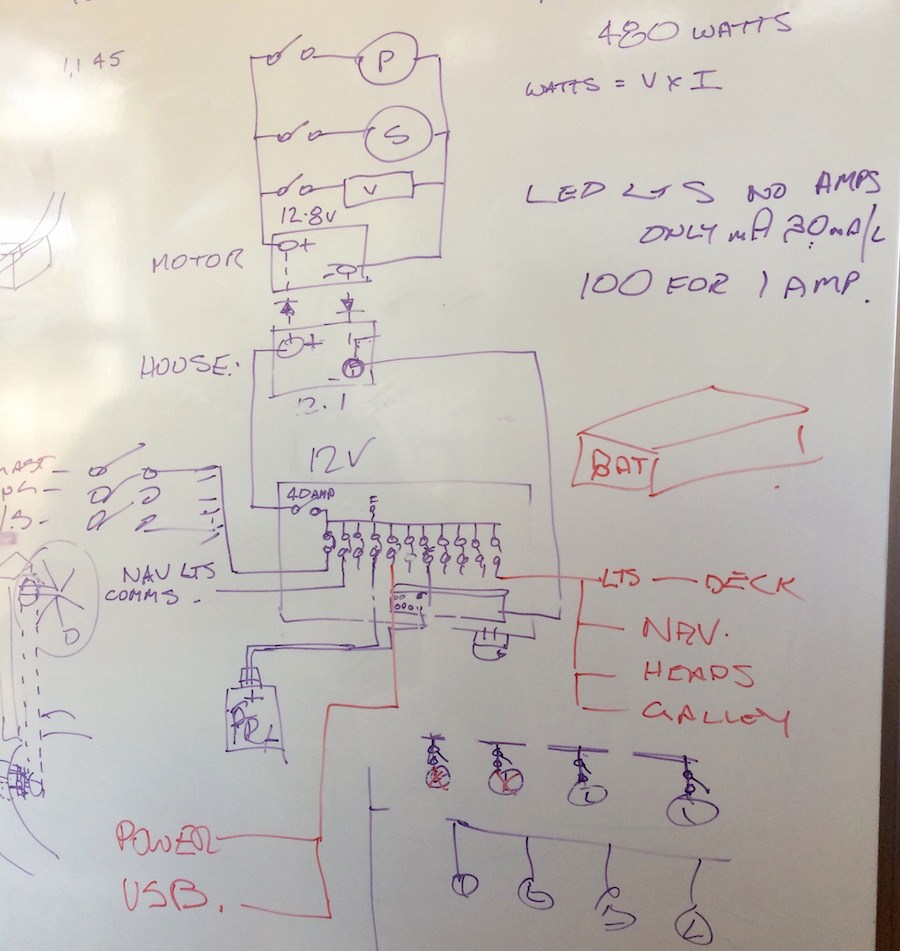 480 WATTS
1,145
P
WATTS = V x I
S
V
LED LTS NO AMPS
12.8V
ONLY mA 30mA/L
+
MOTOR
-
100 FOR 1 AMP.
+
HOUSE.
-
12.1
12V
BAT
40AMP
NAV LTS
LTS — DECK
COMMS.
NAV.
HEADS
+
GALLEY
POWER
USB.
L
L
L